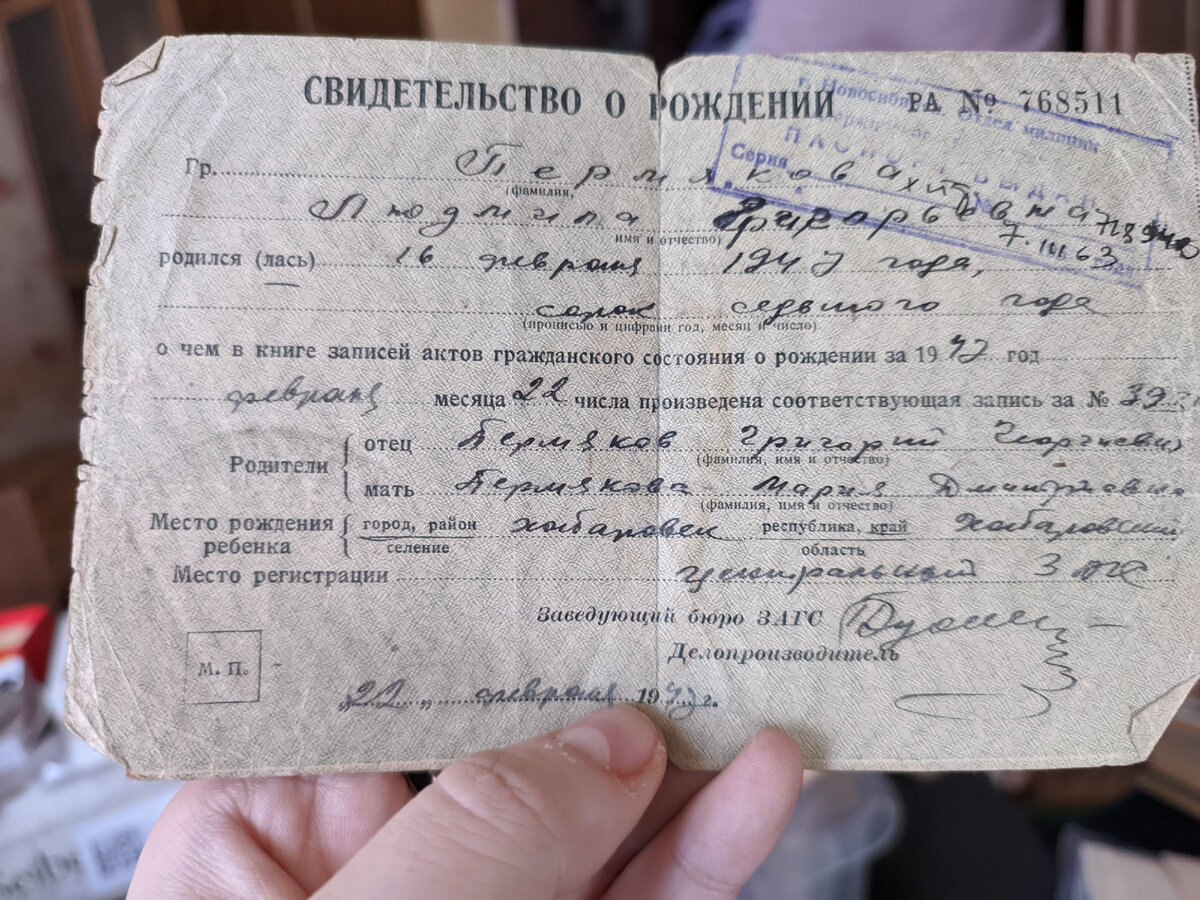 СВИДЕТЕЛЬСТВО О РОЖДЕНИИ РА № 768511
г. Новосиб Отдел милиции
Серия
7.III 63
Гр. Пермякова
(фамилия,
Людмила Григорьевна
имя и отчество)
родился (лась) 16 февраля 1947 года,
сорок седьмого года
(прописью и цифрами год, месяц и число)
о чем в книге записей актов гражданского состояния о рождении за 1947 год
февраля месяца 22 числа произведена соответствующая запись за №
Родители
отец Пермяков Григорий Георгиевич
(фамилия, имя и отчество)
мать Пермякова Мария Дмитриевна
(фамилия, имя и отчество)
Место рождения ребенка
город, район Хабаровск республика, край Хабаровский
селение область
Место регистрации Центральный
Заведующий бюро ЗАГС
Делопроизводитель
М. П.
„22„ февраля 1947г.